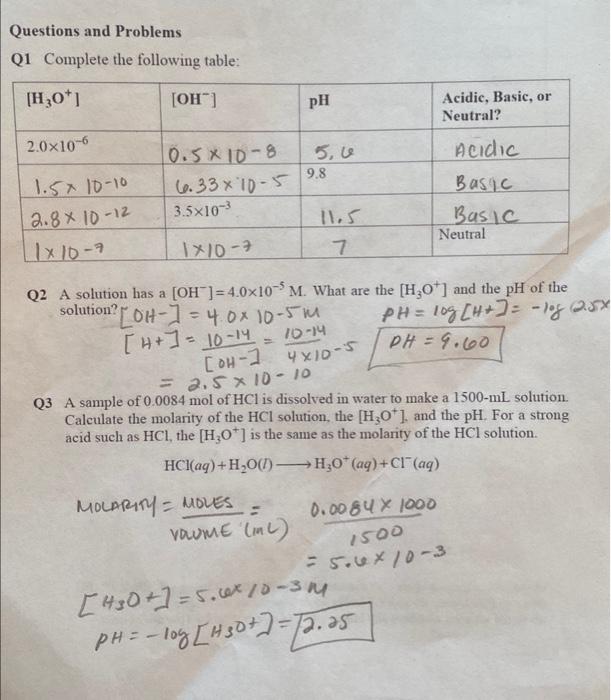 Questions and Problems
Q1 Complete the following table:
[H₃O⁺] [OH⁻] pH Acidic, Basic, or Neutral?
2.0×10⁻⁶ 0.5 × 10-8 5.6 Acidic
1.5 × 10-10 6.33 × 10-5 9.8 Basic
2.8 × 10-12 3.5×10⁻³ 11.5 Basic
1 × 10-7 1×10-7 7 Neutral
Q2 A solution has a [OH⁻]= 4.0×10⁻⁵ M. What are the [H₃O⁺] and the pH of the
solution?
[OH-] = 4.0 × 10-5 M
[H+] = 10-14 / [OH-] = 10-14 / 4×10-5
= 2.5 × 10-10
PH = log [H+] = -log (2.5×
PH = 9.60
Q3 A sample of 0.0084 mol of HCl is dissolved in water to make a 1500-mL solution.
Calculate the molarity of the HCl solution, the [H₃O⁺], and the pH. For a strong
acid such as HCl, the [H₃O⁺] is the same as the molarity of the HCl solution.
HCl(aq)+H₂O(l)⟶H₃O⁺(aq)+Cl⁻(aq)
MOLARITY = MOLES / VOLUME (mL) = 0.0084 × 1000 / 1500
= 5.6 × 10-3
[H3O+] = 5.6× 10-3 M
PH = -log [H3O+] = 2.25